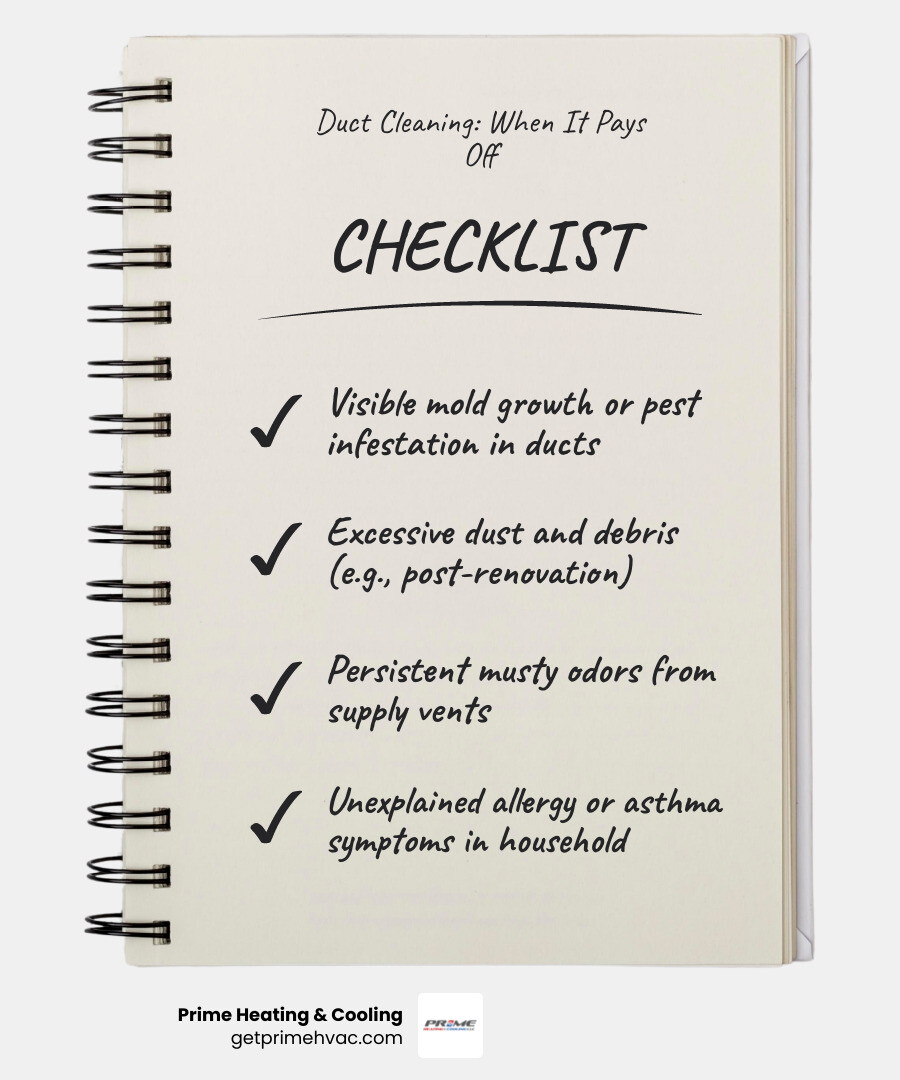 Duct Cleaning: When It Pays
Off
CHECKLIST
Visible mold growth or pest
infestation in ducts
Excessive dust and debris
(e.g., post-renovation)
Persistent musty odors from
supply vents
Unexplained allergy or asthma
symptoms in household
Prime Heating & Cooling
getprimehvac.com
PRIME